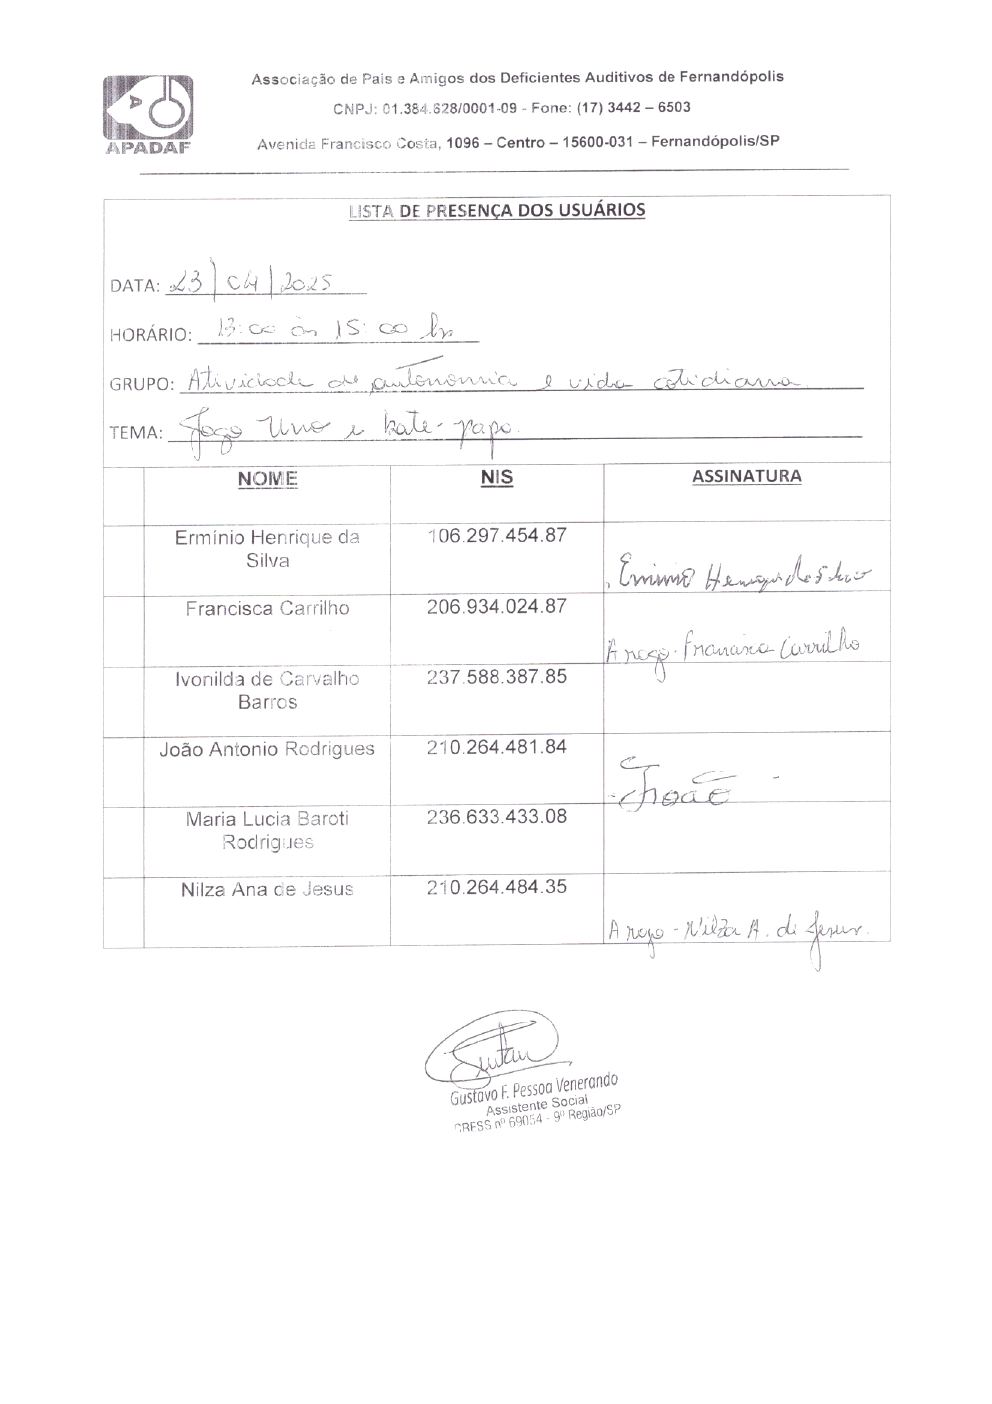 Associação de Pais e Amigos dos Deficientes Auditivos de Fernandópolis
CNPJ: 01.384.628/0001-09 - Fone: (17) 3442 – 6503
APADAF
Avenida Francisco Costa, 1096 – Centro – 15600-031 – Fernandópolis/SP
LISTA DE PRESENÇA DOS USUÁRIOS
DATA: 23/04/2025
HORÁRIO: 13:00 às 15:00 hr
GRUPO: Atividade de autonomia e vida cotidiana
TEMA: Jogo Uno e bate-papo.
NOME NIS ASSINATURA
Ermínio Henrique da 106.297.454.87
Silva
Erminio Henrique da Silva
Francisca Carrilho 206.934.024.87
A rogo - Francisca Carrilho
Ivonilda de Carvalho 237.588.387.85
Barros
João Antonio Rodrigues 210.264.481.84
João
Maria Lucia Baroti 236.633.433.08
Rodrigues
Nilza Ana de Jesus 210.264.484.35
A rogo - Nilza A. de Jesus.
Gustavo F. Pessoa Venerando
Assistente Social
CRESS nº 69054 - 9º Região/SP